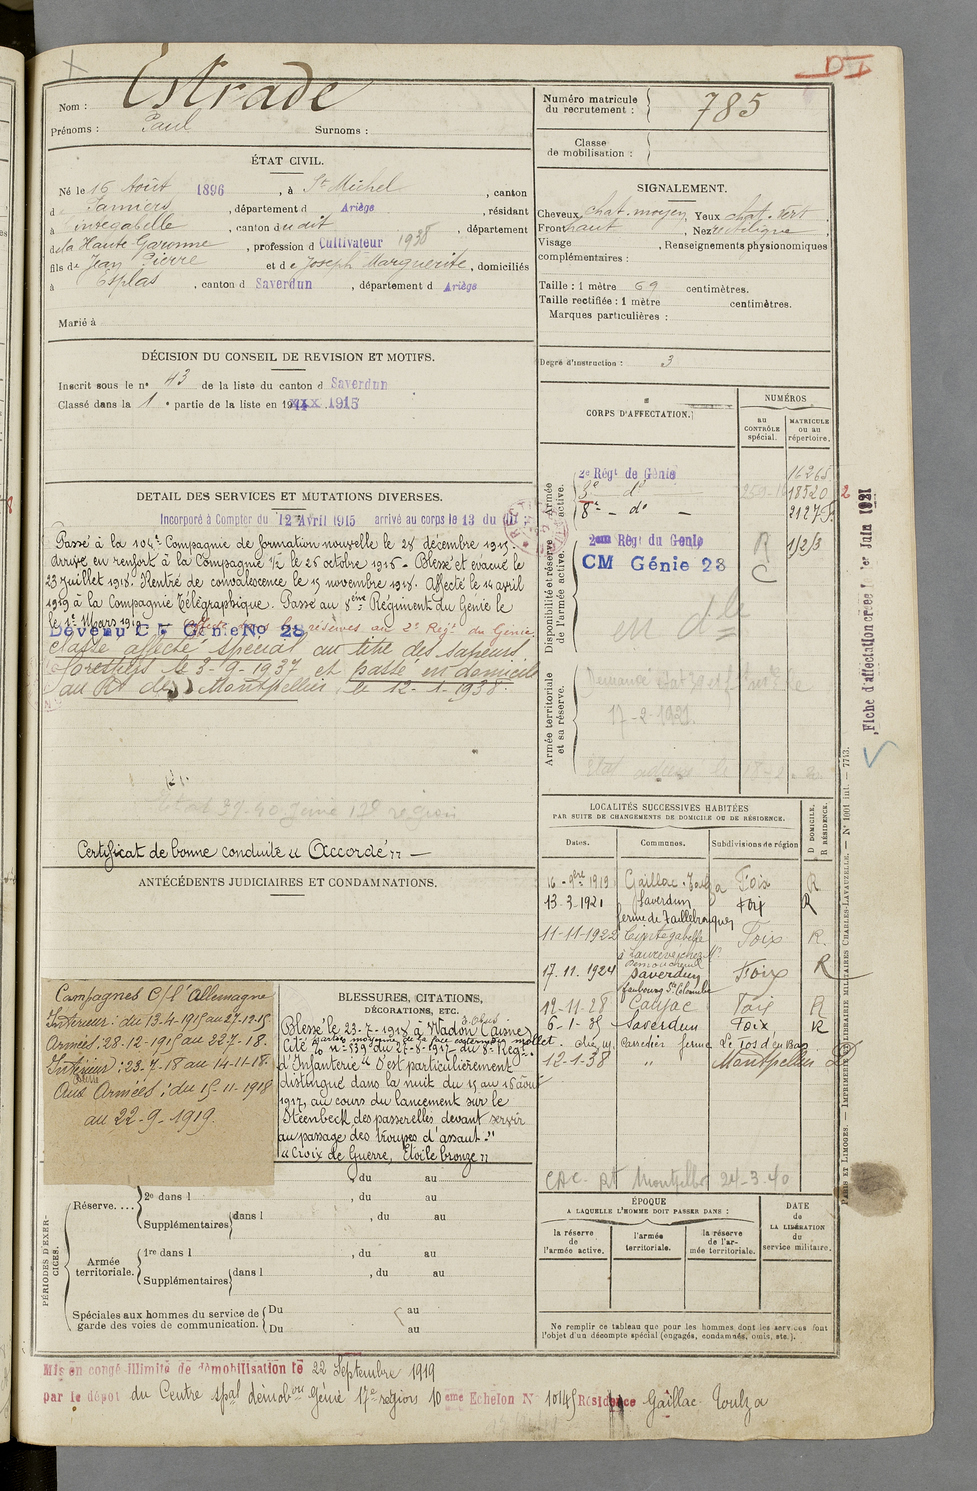 DI
Nom : Estrade
Prénoms : Paul Surnoms :
Numéro matricule du recrutement : 785
Classe de mobilisation :
ÉTAT CIVIL.
Né le 16 Août 1896, à St Michel, canton
de Pamiers, département d Ariège, résidant
à Cintegabelle, canton du dit, département
de la Haute Garonne, profession d Cultivateur 1938
fils de Jean Pierre et de Joseph Marguerite, domiciliés
à Esplas, canton d Saverdun, département d Ariège
Marié à
SIGNALEMENT.
Cheveux chat. moyen Yeux chat. vert
Front haut, Nez rectiligne
Visage, Renseignements physionomiques
complémentaires :
Taille : 1 mètre 69 centimètres.
Taille rectifiée : 1 mètre centimètres.
Marques particulières :
Degré d'instruction : 3
DÉCISION DU CONSEIL DE REVISION ET MOTIFS.
Inscrit sous le n° 43 de la liste du canton d Saverdun
Classé dans la 1e partie de la liste en 1915
DETAIL DES SERVICES ET MUTATIONS DIVERSES.
Incorporé à Compter du 12 Avril 1915 arrivé au corps le 13 du dit
Passé à la 104e Compagnie de formation nouvelle le 28 décembre 1915.
Arrivé en renfort à la Compagnie 1/2 le 25 octobre 1916 - Blessé et évacué le
23 juillet 1918. Rentré de convalescence le 15 novembre 1918. Affecté le 14 avril
1919 à la Compagnie Télégraphique. Passé au 8ème Régiment du Génie le
le 1er Mars 19
réserves au 2e Régt du Génie.
Devenu C Génie No 28
Classé affecté spécial au titre des sapeurs
forestiers le 3-9-1937 et passé en domicile
au Rt de Montpellier le 12-1-1938.
Certificat de bonne conduite "Accordé" —
ANTÉCÉDENTS JUDICIAIRES ET CONDAMNATIONS.
Campagnes C/ l'Allemagne
Intérieur : du 13-4-1915 au 27-12-15
Armées : 28-12-1915 au 22-7-18.
Intérieur : 23-7-18 au 14-11-18
Aux Armées : du 15-11-1918
au 22-9-1919.
BLESSURES, CITATIONS, DÉCORATIONS, ETC.
Blessé le 23-7-1918 à Wadon (Aisne)
mollet.
Cité n° 539 du 27-8-1917 du 8e Régt
d'Infanterie "S'est particulièrement
distingué dans la nuit du 15 au 16 août
1917, au cours du lancement sur le
Steenbeck des passerelles devant servir
au passage des troupes d'assaut"
"Croix de Guerre, Etoile bronze"
PÉRIODES D'EXERCICES.
, du au
Réserve.... 2e dans l , du au
Supplémentaires dans l , du au
Armée territoriale. 1re dans l , du au
Supplémentaires dans l , du au
Spéciales aux hommes du service de garde des voies de communication. Du au
Du au
CORPS D'AFFECTATION.
NUMÉROS
AU CONTRÔLE spécial.
MATRICULE ou au répertoire.
Armée active.
2e Régt de Génie 16265
3e d° 18520
8e - d° - 2127
Disponibilité et réserve de l'armée active.
2eme Régt du Genie R 1/2/3
CM Génie 28 C
en dlle
Armée territoriale et sa réserve.
17-2-1921.
Fiche d'affectation créée le 1er Juin 1921
LOCALITÉS SUCCESSIVES HABITÉES
PAR SUITE DE CHANGEMENTS DE DOMICILE OU DE RÉSIDENCE.
Dates. Communes. Subdivisions de région D DOMICILE. R RÉSIDENCE.
16-9bre 1919 Gaillac-Toulza Foix R
13-3-1921 Saverdun Foix R
ferme de Taillebroques
11-11-1922 Cintegabelle Foix R.
17.11.1924 Saverdun Foix R
faubourg Ste Colombe
12-11-28 Caujac Foix R
6-1-35 Saverdun Foix R
12-1-38 " Montpellier D
CAC. Rt Montpellier 24-3-40
ÉPOQUE
A LAQUELLE L'HOMME DOIT PASSER DANS :
la réserve de l'armée active.
l'armée territoriale.
la réserve de l'armée territoriale.
DATE de LA LIBÉRATION du service militaire.
Ne remplir ce tableau que pour les hommes dont les services font
l'objet d'un décompte spécial (engagés, condamnés, omis, etc.).
PARIS ET LIMOGES. — IMPRIMERIE ET LIBRAIRIE MILITAIRES CHARLES-LAVAUZELLE. — N° 1001 int. — 7713.
Mis en congé illimité de démobilisation le 22 Septembre 1919
par le dépôt du Centre spal démob Génie 17e région 10eme Echelon N° 10145 Résidence Gaillac Toulza